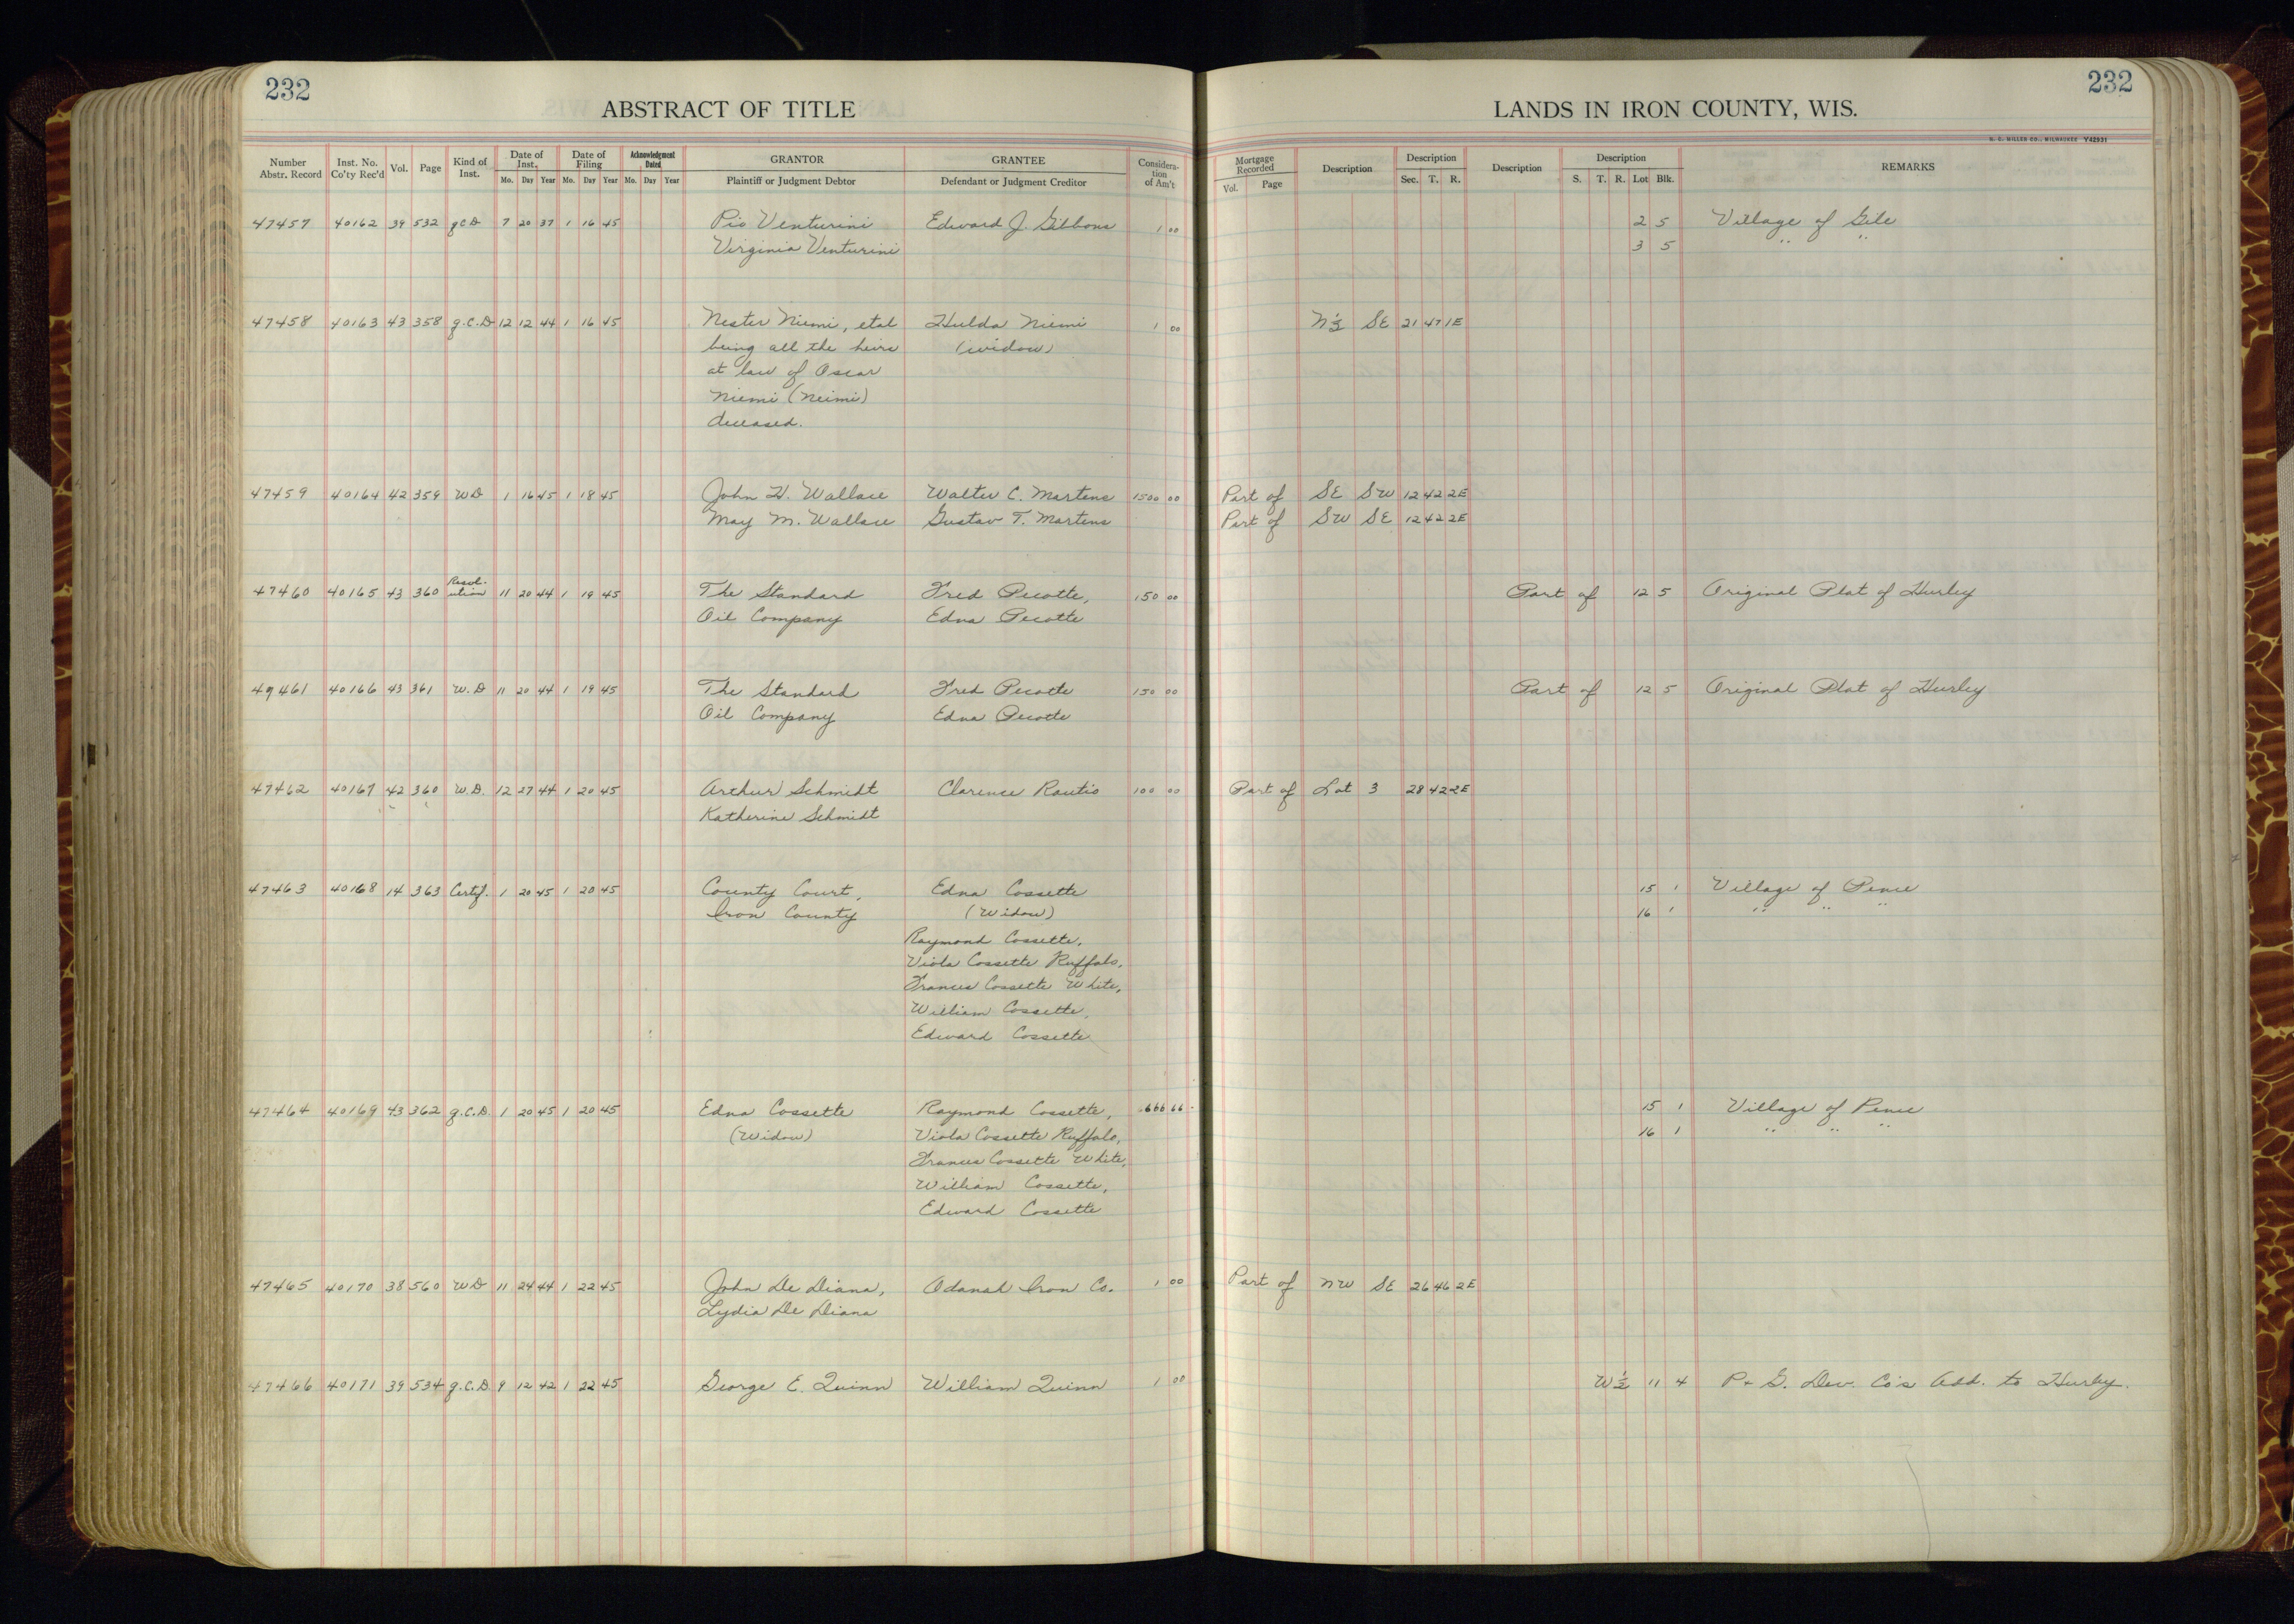 232
232
ABSTRACT OF TITLE
LANDS IN IRON COUNTY, WIS.
H. C. MILLER CO., MILWAUKEE Y42931
Number Abstr. Record Inst. No. Co'ty Rec'd Vol. Page Kind of Inst. Date of Inst. Mo. Day Year Date of Filing Mo. Day Year Acknowledgment Dated Mo. Day Year GRANTOR Plaintiff or Judgment Debtor GRANTEE Defendant or Judgment Creditor Consideration of Am't Mortgage Recorded Vol. Page Description Description Sec. T. R. Description Description S. T. R. Lot Blk. REMARKS
47457 40162 39 532 q.C.D 7 20 37 1 16 45 Pio Venturini Edward J. Gibbons 1 00 2 5 Village of Gile
Virginia Venturini 3 5 " "
47458 40163 43 358 q.C.D 12 12 44 1 16 45 Nester Niemi, etal Hulda Niemi 1 00 N½ SE 21 47 1E
being all the heirs (widow)
at law of Oscar
Niemi (Neimi)
deceased.
47459 40164 42 359 WD 1 16 45 1 18 45 John H. Wallace Walter C. Martens 1500 00 Part of SE SW 12 42 2E
May M. Wallace Gustav T. Martens Part of SW SE 12 42 2E
47460 40165 43 360 Resolution 11 20 44 1 19 45 The Standard Fred Pecotte, 150 00 Part of 12 5 Original Plat of Hurley
Oil Company Edna Pecotte
47461 40166 43 361 W.D 11 20 44 1 19 45 The Standard Fred Pecotte 150 00 Part of 12 5 Original Plat of Hurley
Oil Company Edna Pecotte
47462 40167 42 360 W.D. 12 27 44 1 20 45 Arthur Schmidt Clarence Rautio 100 00 Part of Lot 3 28 42 2E
Katherine Schmidt
47463 40168 14 363 Certif. 1 20 45 1 20 45 County Court, Edna Cossette 15 1 Village of Pence
Iron County (Widow) 16 1 " " "
Raymond Cossette,
Viola Cossette Ruffalo,
Frances Cossette White,
William Cossette,
Edward Cossette
47464 40169 43 362 q.C.D. 1 20 45 1 20 45 Edna Cossette Raymond Cossette, 666 66 15 1 Village of Pence
(Widow) Viola Cossette Ruffalo, 16 1 " " "
Frances Cossette White,
William Cossette,
Edward Cossette
47465 40170 38 560 WD 11 24 44 1 22 45 John De Diana, Odanah Iron Co. 1 00 Part of NW SE 26 46 2E
Lydia De Diana
47466 40171 39 534 q.C.D 9 12 42 1 22 45 George E. Quinn William Quinn 1 00 W½ 11 4 P. & G. Dev. Co's Add. to Hurley.